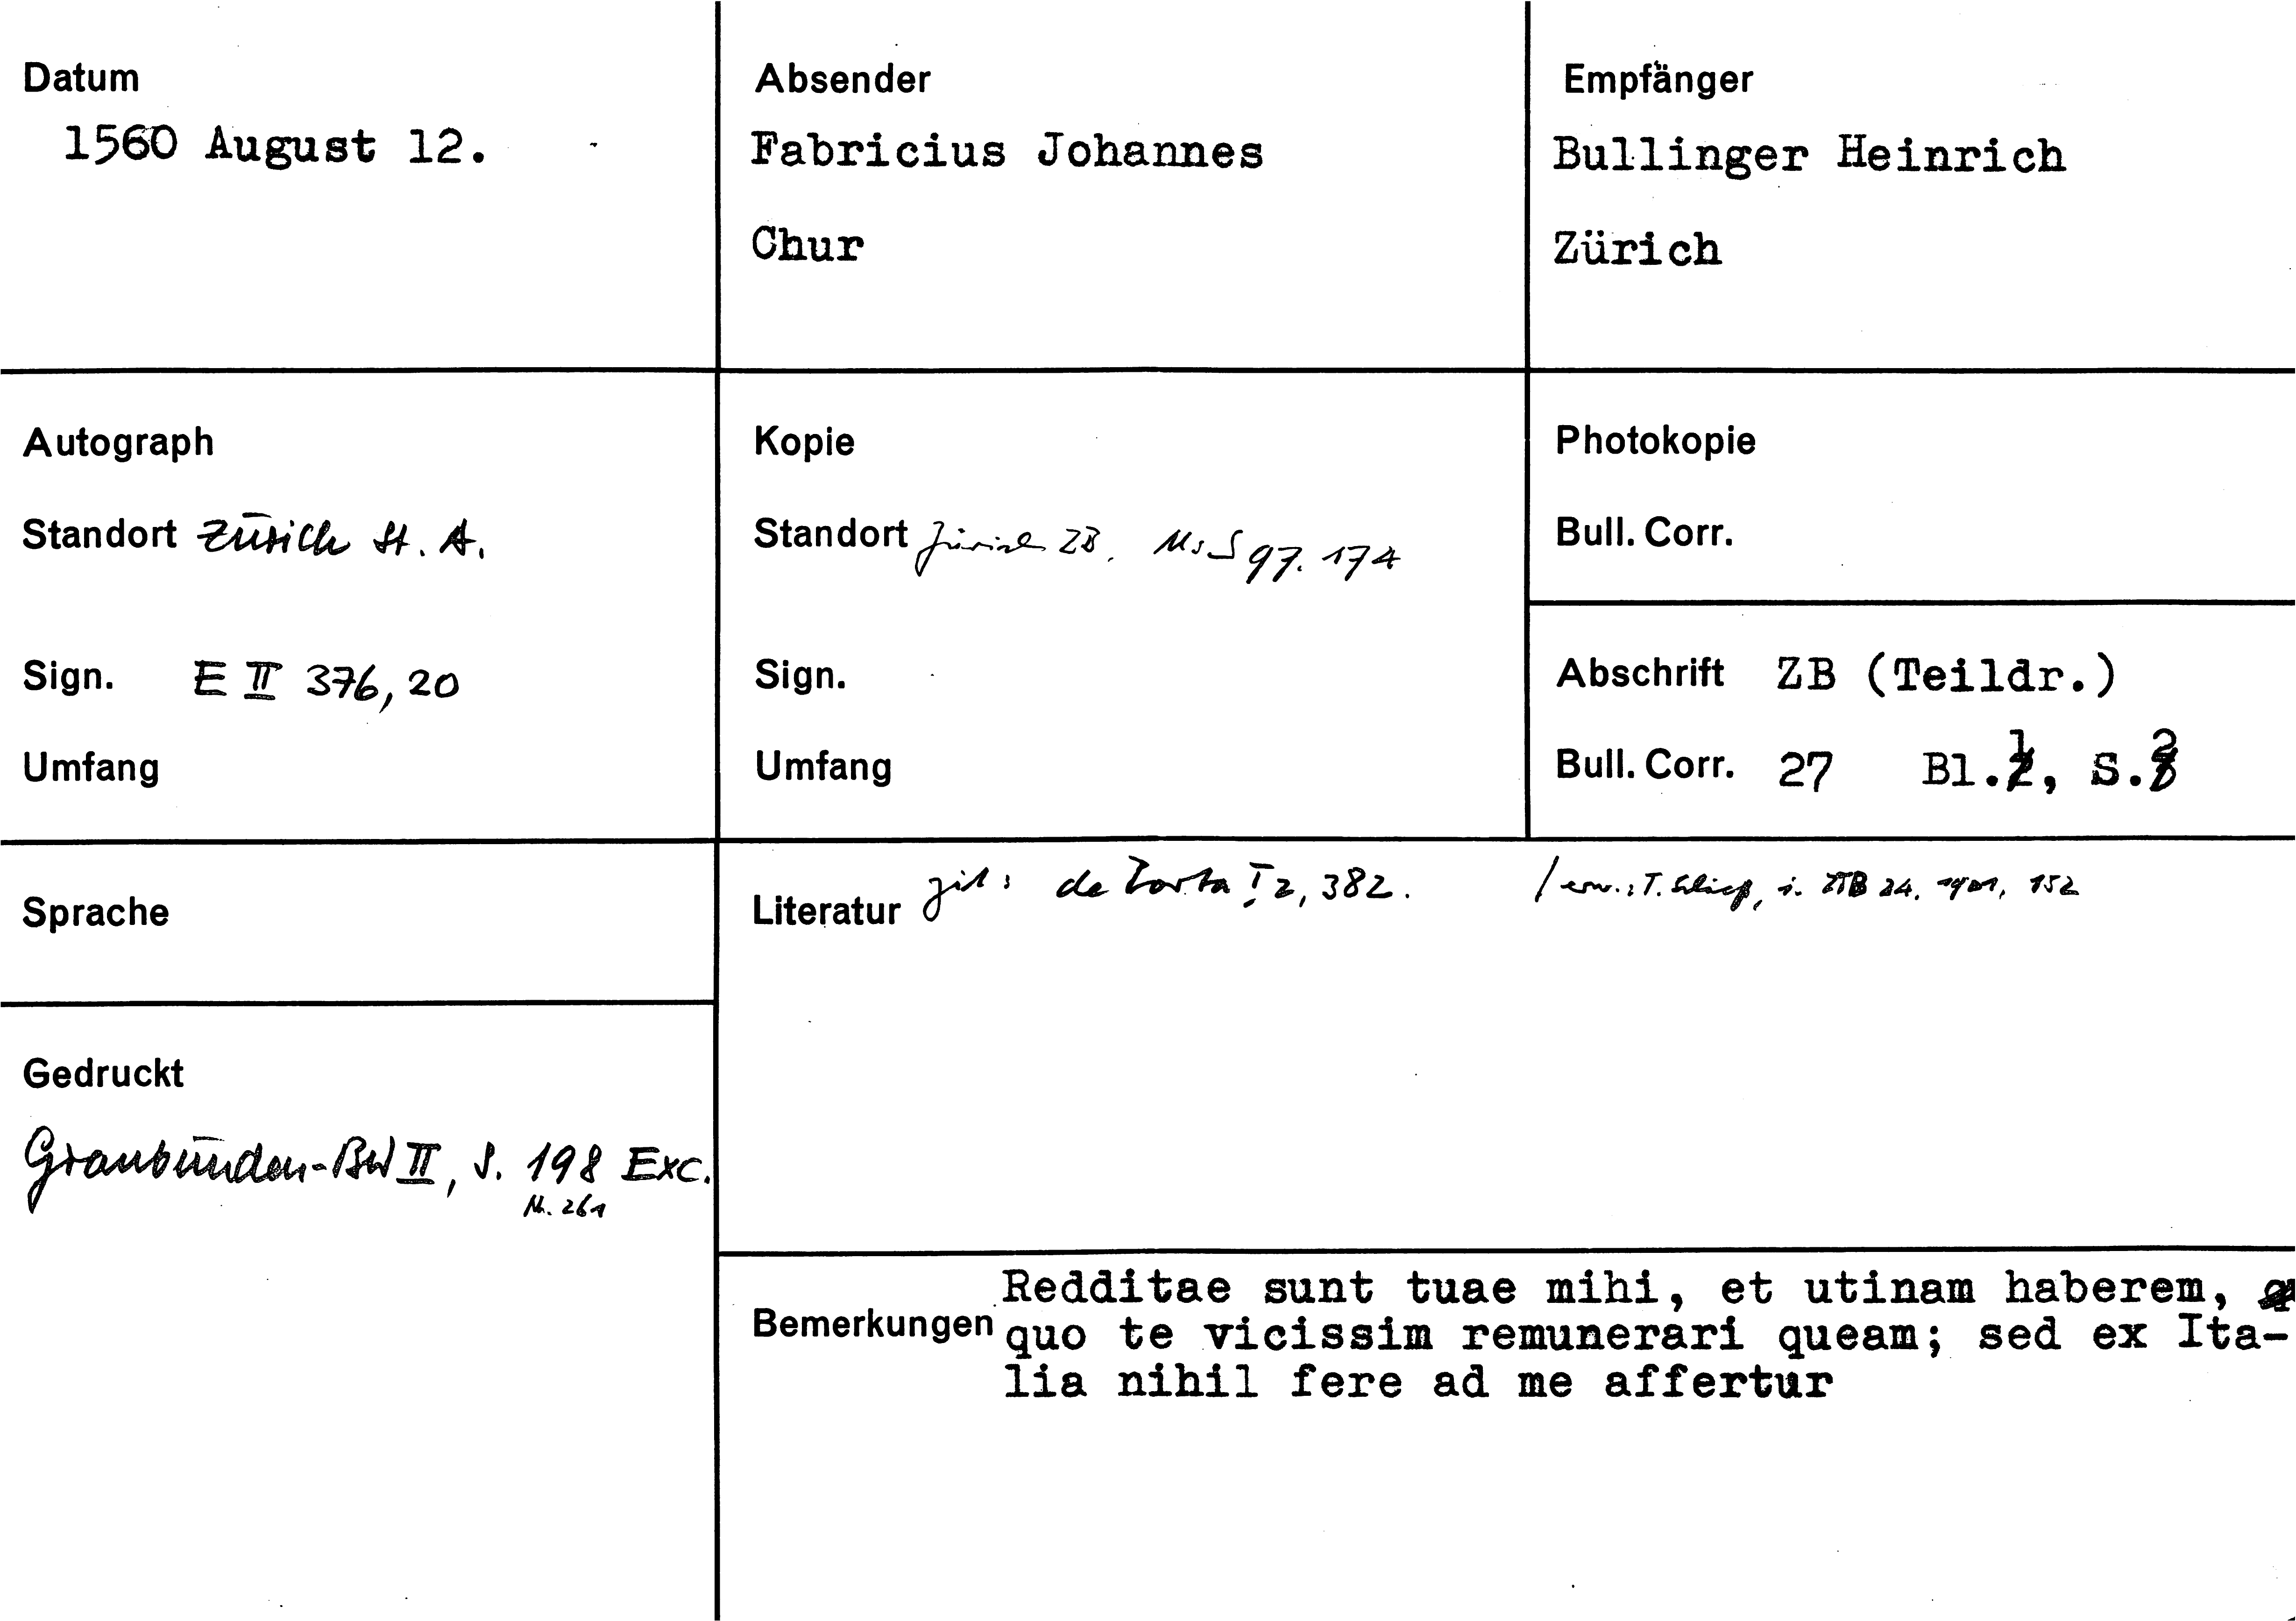 Datum
1560 August 12.
Absender
Fabricius Johannes
Chur
Empfänger
Bullinger Heinrich
Zürich
Autograph
Standort Zürich St. A.
Sign. E II 376, 20
Umfang
Kopie
Standort Zürich ZB. Ms S 97. 174
Sign.
Umfang
Photokopie
Bull. Corr.
Abschrift ZB (Teildr.)
Bull. Corr. 27 Bl. 1, S. 2
Sprache
Literatur zit: de Porta I 2, 382. / erw.: T. Schieß, i. ZTB 24, 1901, 152
Gedruckt
Graubünden-BW II, S. 198 Exc.
Nr. 261
Bemerkungen
Redditae sunt tuae mihi, et utinam haberem,
quo te vicissim remunerari queam; sed ex Ita-
lia nihil fere ad me affertur